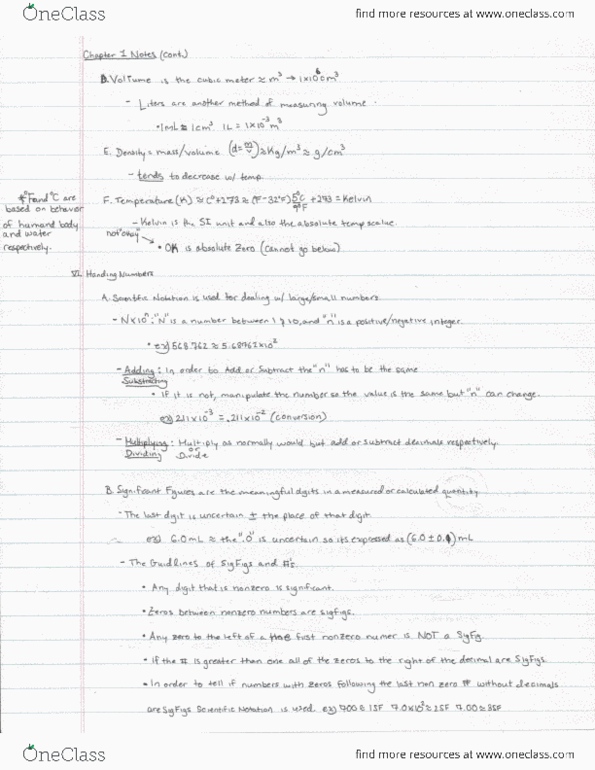 OneClass
find more resources at www.oneclass.com
Chapter 1 Notes (cont.)
D. Voltume is the cubic meter ≈ m³ → 1x10⁶cm³
- Liters are another method of measuring volume.
• 1mL ≈ 1cm³ 1L = 1x10⁻³m³
E. Density = mass/volume (d=m/v) ≈ Kg/m³ ≈ g/cm³
- tends to decrease w/ temp.
* °F and °C are
based on behavior
of humand body
and water
respectively.
F. Temperature (K) ≈ C°+273 ≈ (F-32°F) 5°C/9°F + 273 = Kelvin
- Kelvin is the SI unit and also the absolute temp scalue.
not "okay"
• 0K is absolute Zero (cannot go below)
VI. Handing Numbers
A. Scientific Notation is used for dealing w/ large/small numbers.
- Nx10ⁿ: "N" is a number between 1 & 10, and "n" is a positive/negative integer.
• ex) 568.762 ≈ 5.68762x10²
- Adding: In order to Add or Subtract the "n" has to be the same
Substracting
• If it is not, manipulate the number so the value is the same but "n" can change.
ex) 2.11x10⁻³ = .211x10⁻² (conversion)
- Multiplying: Multiply as normally would but add or subtract decimals respectively.
Dividing or Divide
B. Significant Figures are the meaningful digits in a measured or calculated quantity
- The last digit is uncertain ± the place of that digit
ex) 6.0mL ≈ the ".0" is uncertain so its expressed as (6.0 ± 0.1) mL
- The Guidlines of SigFigs and #'s.
• Any digit that is nonzero is significant.
• Zeros between nonzero numbers are sigfigs.
• Any zero to the left of a the first nonzero numer is NOT a SigFig.
• If the # is greater than one all of the zeros to the right of the decimal are SigFigs.
• In order to tell if numbers with zeros following the last non zero # without decimals
are SigFigs Scientific Notation is used. ex) 700 ≈ 1SF 7.0x10² ≈ 2SF 7.00 ≈ 3SF
OneClass
find more resources at www.oneclass.com